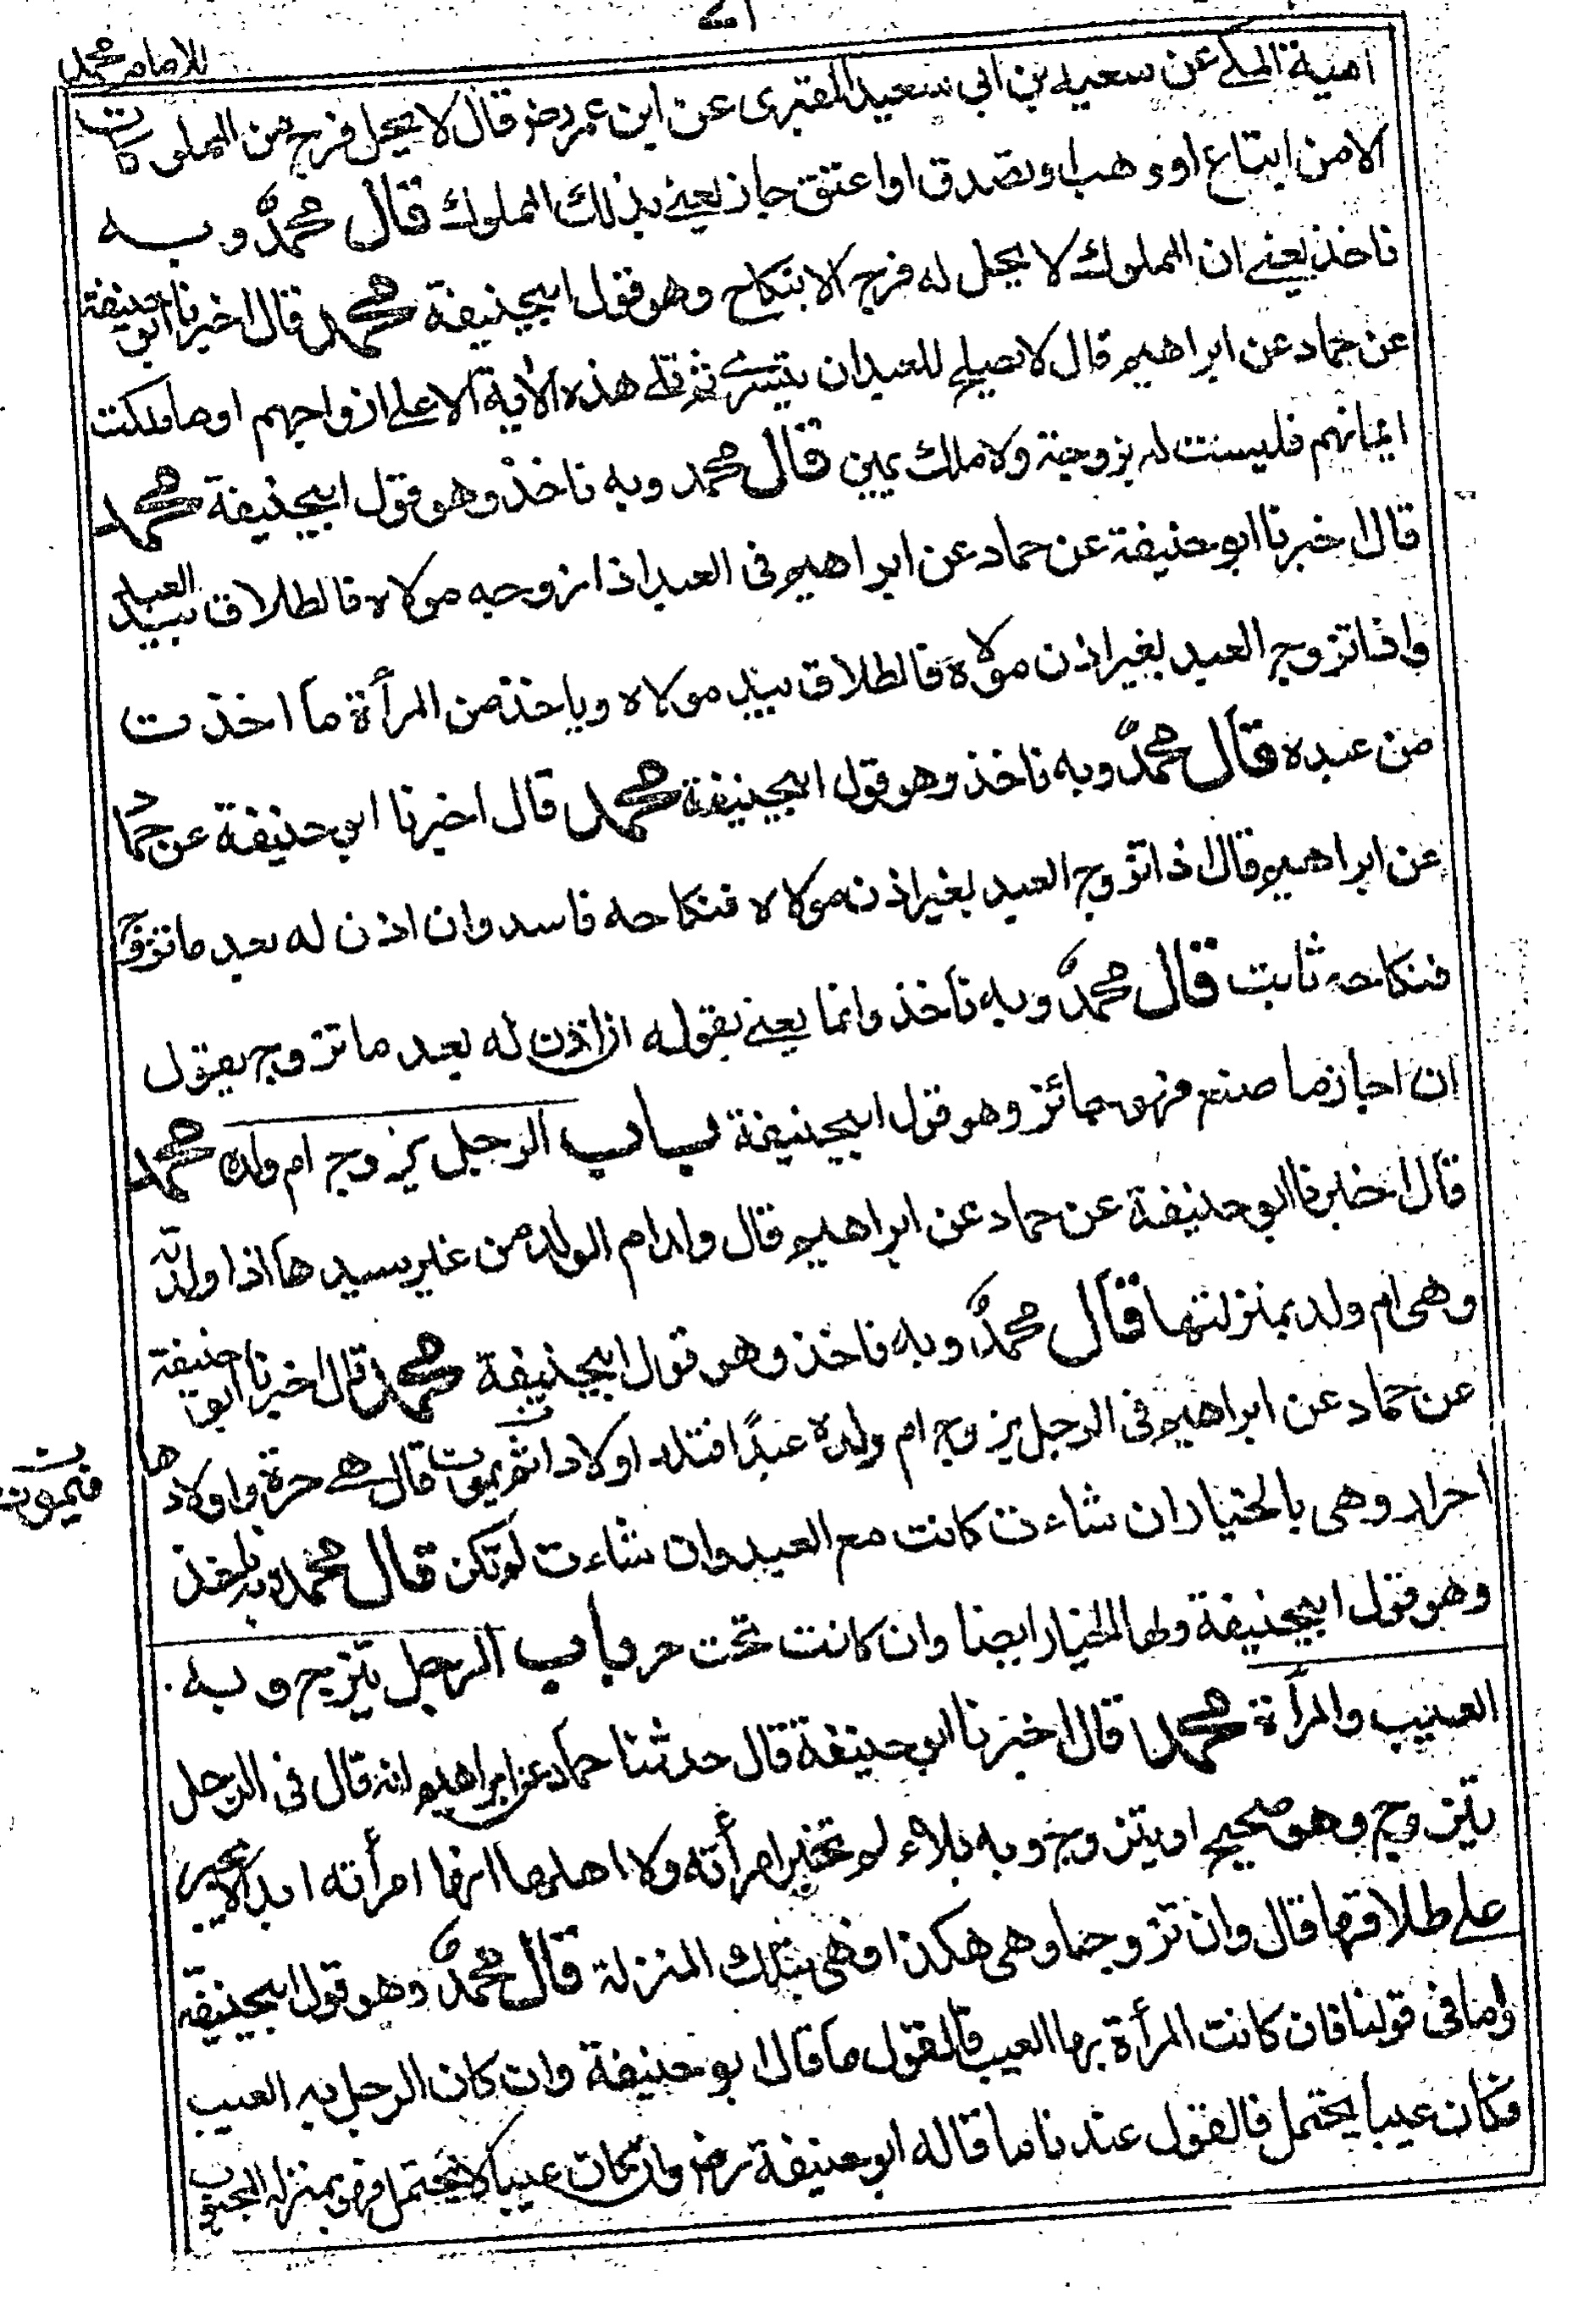 للامام محمد
امية المكي عن سعيد بن ابي سعيد المقبرى عن ابن عمر رض قال لا يحل فرج من المملوكات
الا من ابتاع او وهب او تصدق او اعتق جاز يعني بذلك المملوك قال محمد وبه
ناخذ يعني ان المملوك لا يحل له فرج الا بنكاح وهو قول ابيحنيفة محمد قال اخبرنا ابو حنيفة
عن حماد عن ابراهيم قال لا يصلح للعبد ان يتسرى ثم تلى هذه الآية الا على ازواجهم او ما ملكت
ايمانهم فليست له بزوجة ولا ملك يمين قال محمد وبه ناخذ وهو قول ابيحنيفة محمد
قال اخبرنا ابو حنيفة عن حماد عن ابراهيم فى العبد اذا زوجه مولاه فالطلاق بيد العبد
واذا تزوج العبد بغير اذن مولاه فالطلاق بيد مولاه وياخذ من المرأة ما اخذت
من عبده قال محمد وبه ناخذ وهو قول ابيحنيفة محمد قال اخبرنا ابو حنيفة عن حماد
عن ابراهيم قال اذا تزوج العبد بغير اذن مولاه فنكاحه فاسد وان اذن له بعد ما تزوج
فنكاحه ثابت قال محمد وبه ناخذ وانما يعني بقوله ان اذن له بعد ما تزوج يقول
ان اجاز ما صنع فهو جائز وهو قول ابيحنيفة باب الرجل يزوج ام ولده محمد
قال اخبرنا ابو حنيفة عن حماد عن ابراهيم قال ولد ام الولد من غير سيدها اذا ولدته
وهى ام ولد بمنزلتها قال محمد وبه ناخذ وهو قول ابيحنيفة محمد قال اخبرنا ابو حنيفة
عن حماد عن ابراهيم فى الرجل يزوج ام ولده عبدا فتلد اولادا ثم يموت قال هي حرة واولادها
فيموت
احرار وهى بالخيار ان شاءت كانت مع العبد وان شاءت لم تكن قال محمد وبه ناخذ
وهو قول ابيحنيفة ولها الخيار ايضا وان كانت تحت حر باب الرجل يتزوج وبه
العيب والمرأة محمد قال اخبرنا ابو حنيفة قال حدثنا حماد عن ابراهيم انه قال فى الرجل
يتزوج وهو صحيح او يتزوج وبه بلاء لم تخير امرأته ولا اهلها انها امرأته ابدا لا يجبر
على طلاقها قال وان تزوجها وهى هكذا فهى بتلك المنزلة قال محمد وهو قول ابيحنيفة
واما فى قولنا فان كانت المرأة بها العيب فالقول ما قال ابو حنيفة وان كان الرجل به العيب
فكان عيبا يحتمل فالقول عندنا ما قاله ابو حنيفة رض وان كان عيبا لا يحتمل فهو بمنزلة المجبوب